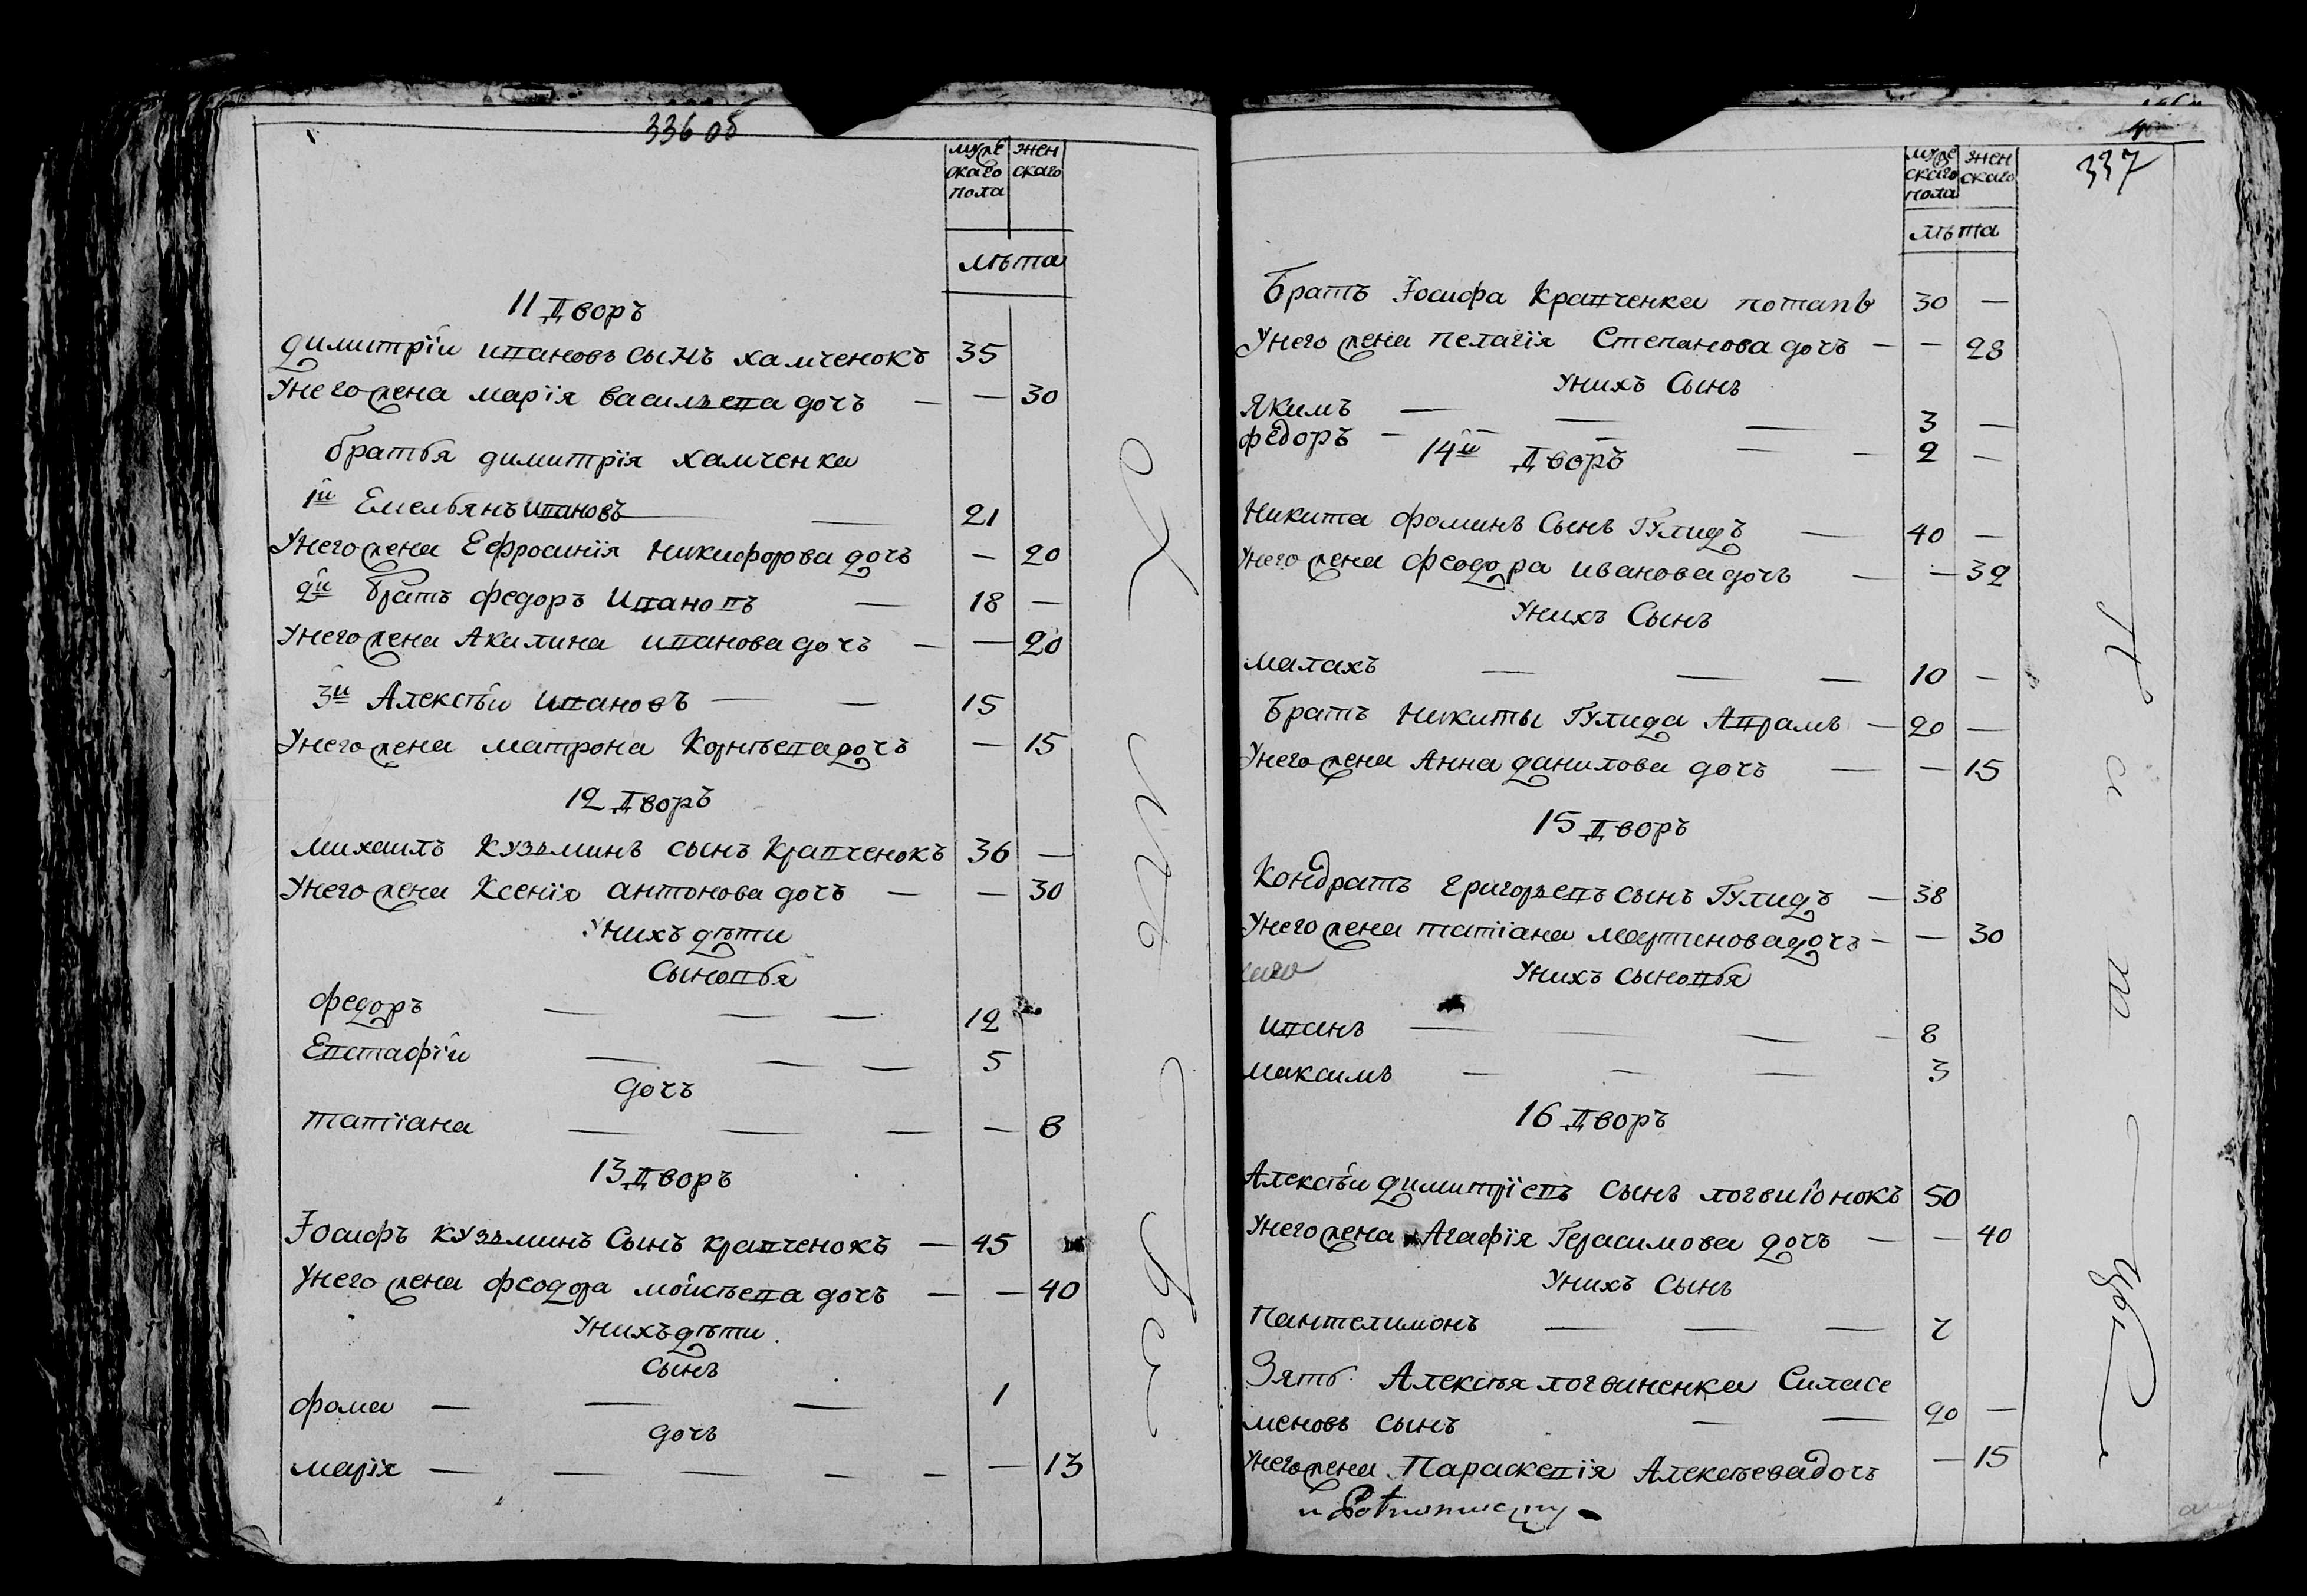 336 об
муже женскаго
скаго пола
лѣта
11 Дворъ
димитрій ивановъ сынъ хамченокъ 35
У него жена марія васильева дочъ — — 30
братья димитрія хамченка
1й Емельянъ ивановъ — — 21
У него жена Ефросинія никифорова дочъ — 20
2й братъ федоръ Ивановъ — 18 —
У него жена Акилина иванова дочъ — — 20
3й Алексѣй ивановъ — — 15
У него жена матрона Корнѣева дочъ — 15
12 Дворъ
михаилъ Кузьминъ сынъ Кравченокъ 36 —
У него жена Ксенія антонова дочъ — — 30
У нихъ дѣти
Сыновья
федоръ — — — 12
Евстафій — — — 5
дочъ
татіана — — — — 8
13 Дворъ
Іосифъ кузьминъ Сынъ кравченокъ — 45
У него жена феодора мойсѣева дочъ — — 40
У нихъ дѣти
сынъ
фома — — — 1
дочъ
марія — — — — — — 13
337
муже женскаго
скаго пола
лѣта
Братъ Іосифа Кравченка потапъ 30 —
У него жена пелагія Степанова дочъ — — 28
У нихъ Сынъ
Якимъ — — — 3 —
федоръ — — — — 2 —
14й Дворъ
Никита фоминъ Сынъ Гулидъ — 40 —
У него жена феодора иванова дочъ — — 32
У нихъ Сынъ
малахъ — — — 10 —
Братъ Никиты Гулида Аврамъ — 20 —
У него жена Анна данилова дочъ — — 15
15 Дворъ
Кондратъ григорьевъ сынъ Гулидъ — 38
У него жена татіана мартинова дочъ — — 30
У нихъ сыновья
иванъ — — — 8
максимъ — — — 3
16 Дворъ
Алексѣй димитріевъ сынъ логвиіонокъ 50
У него жена Агафія Герасимова дочъ — — 40
У нихъ сынъ
Пантелимонъ — — — 7
Зять Алексѣя логвиненка Силасе
меновъ сынъ — — 20 —
У него жена Параскевія Алексѣева дочъ — 15